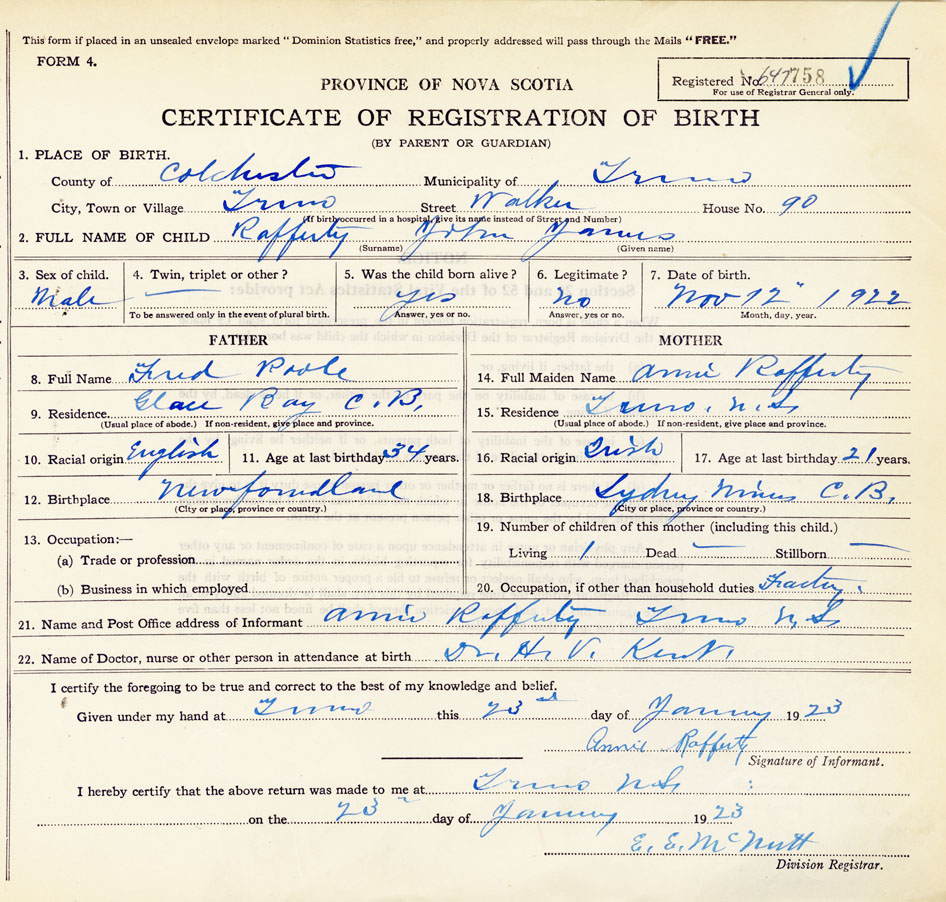 This form if placed in an unsealed envelope marked "Dominion Statistics free," and properly addressed will pass through the Mails "FREE."
FORM 4.
Registered No. 647758
For use of Registrar General only.
PROVINCE OF NOVA SCOTIA
CERTIFICATE OF REGISTRATION OF BIRTH
(BY PARENT OR GUARDIAN)
1. PLACE OF BIRTH.
County of Colchester Municipality of Truro
City, Town or Village Truro Street Walker House No. 90
(If birth occurred in a hospital, give its name instead of Street and Number)
2. FULL NAME OF CHILD Rafferty John James
(Surname) (Given name)
3. Sex of child. 4. Twin, triplet or other? 5. Was the child born alive? 6. Legitimate? 7. Date of birth.
Male — yes no Nov 12" 1922
To be answered only in the event of plural birth. Answer, yes or no. Answer, yes or no. Month, day, year.
FATHER MOTHER
8. Full Name Fred Poole 14. Full Maiden Name Annie Rafferty
9. Residence Glace Bay C.B. 15. Residence Truro, N.S
(Usual place of abode.) If non-resident, give place and province. (Usual place of abode.) If non-resident, give place and province.
10. Racial origin English 11. Age at last birthday 34 years. 16. Racial origin Irish 17. Age at last birthday 21 years.
12. Birthplace Newfoundland 18. Birthplace Sydney Mines C.B.
(City or place, province or country.) (City or place, province or country.)
13. Occupation:— 19. Number of children of this mother (including this child.)
(a) Trade or profession Living 1 Dead — Stillborn —
(b) Business in which employed 20. Occupation, if other than household duties Factory.
21. Name and Post Office address of Informant Annie Rafferty Truro N.S
22. Name of Doctor, nurse or other person in attendance at birth Dr. H. V. Kent.
I certify the foregoing to be true and correct to the best of my knowledge and belief.
Given under my hand at Truro this 23rd day of January 1923
Annie Rafferty
Signature of Informant.
I hereby certify that the above return was made to me at Truro N.S
on the 23 day of January 1923
E. E. McNutt
Division Registrar.